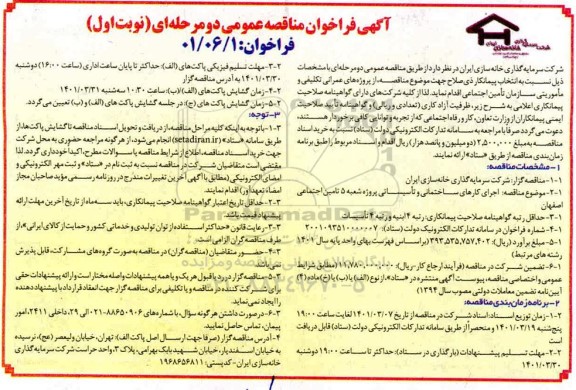 آگهی فراخوان مناقصه عمومی دو مرحله‌ای (نوبت اول)
فراخوان: ۰۱/۰۶/۱
شرکت سرمایه گذاری خانه سازی ایران در نظر دارد از طریق مناقصه عمومی دو مرحله‌ای با مشخصات
ذیل نسبت به انتخاب پیمانکار ذی صلاح جهت موضوع مناقصه، از پروژه‌های عمرانی تکلیفی و
مأموریتی سازمان تأمین اجتماعی اقدام نماید. لذا از کلیه شرکت‌های دارای گواهینامه صلاحیت
پیمانکاری اعلامی به شرح زیر، ظرفیت آزاد کاری (تعدادی و ریالی) و گواهینامه تأیید صلاحیت
ایمنی پیمانکاران از وزارت تعاون، کار و رفاه اجتماعی که از تجربه و توانایی کافی برخوردار هستند،
دعوت می‌گردد صرفاً با مراجعه به سامانه تدارکات الکترونیکی دولت (ستاد) نسبت به خرید اسناد
مناقصه به مبلغ ۲,۵۰۰,۰۰۰ (دو میلیون و پانصد هزار) ریال اقدام و اسناد مربوط را طبق برنامه
زمان‌بندی مناقصه از طریق «ستاد» ارائه نمایند.
۱-مشخصات مناقصه:
۱-۱-مناقصه گزار: شرکت سرمایه گذاری خانه سازی ایران
۲-۱-موضوع مناقصه: اجرای کارهای ساختمانی و تأسیساتی پروژه شعبه ۵ تامین اجتماعی
اصفهان
۳-۱-حداقل رتبه گواهینامه صلاحیت پیمانکاری: رتبه ۴ ابنیه و رتبه ۴ تأسیسات
۴-۱-شماره فراخوان در سامانه تدارکات الکترونیک دولت (ستاد):
۵-۱-مبلغ برآورد (ریال): ۳۹۳,۵۳۵,۷۵۷,۴۰۲ (براساس فهرست بهای واحد پایه سال ۱۴۰۱
رشته های مرتبط)
۶-۱-تضمین شرکت در مناقصه (فرآیند ارجاع کار-ریال): (مطابق شرایط
عمومی و اختصاصی مناقصه، پیوست آگهی منتشره در «ستاد»، از نوع (الف) یا (ب) یا (خ) ماده (۴)
آیین‌نامه تضمین معاملات دولتی مصوب سال ۱۳۹۴)
۲-برنامه زمان‌بندی مناقصه:
۱-۲-زمان توزیع اسناد: اسناد شرکت در مناقصه از تاریخ ۱۴۰۱/۰۳/۰۷ لغایت ساعت ۱۹:۰۰
پنج‌شنبه ۱۴۰۱/۰۳/۱۹ و منحصراً از طریق سامانه تدارکات الکترونیکی دولت (ستاد) قابل دریافت
است
۲-۲-مهلت تسلیم پیشنهادات (بارگذاری در ستاد): حداکثر تا ساعت ۱۹:۰۰ دوشنبه
۱۴۰۱/۰۳/۳۰
۳-۲-مهلت تسلیم فیزیکی پاکت‌های (الف): حداکثر تا پایان ساعت اداری (ساعت ۱۶:۰۰) دوشنبه
۱۴۰۱/۰۳/۳۰ به آدرس مناقصه گزار
۴-۲-زمان گشایش پاکت‌های (الف)/(ب): ساعت ۱۰:۳۰ سه‌شنبه ۱۴۰۱/۰۳/۳۱
۵-۲-زمان گشایش پاکت های (ج): در جلسه گشایش پاکت های (الف) و (ب) تعیین می‌گردد.
۳-توجه:
۱-۳-باتوجه به اینکه کلیه مراحل مناقصه، از دریافت و تحویل اسناد مناقصه تا گشایش پاکت‌ها، از
طریق سامانه «ستاد» (setadiran.ir) انجام می‌شود، از هرگونه مراجعه حضوری به محل شرکت
جهت خرید اسناد مناقصه، اطلاع از شرایط مناقصه یا سوالات مطرح، اکیداً خودداری گردد. لذا
مقتضی است متقاضیان شرکت در مناقصه نسبت به ثبت نام در «ستاد» و ثبت مهر الکترونیکی و
امضای الکترونیکی (مطابق با آگهی آخرین تغییرات مندرج در روزنامه رسمی، مؤید صاحبان مجاز
امضاء تعهدآور) اقدام نمایند.
۲-۳-حداقل تاریخ اعتبار گواهینامه صلاحیت پیمانکاری، باید سه ماه از تاریخ آخرین مهلت ارائه
پیشنهاد قیمت باشد.
۳-۳-رعایت قانون «حداکثر استفاده از توان تولیدی و خدماتی کشور و حمایت از کالای ایرانی»، از
طرف مناقصه گران الزامی است.
۴-۳-حضور متقاضیان (مناقصه گران) در مناقصه به صورت گروه های مشارکت، قابل پذیرش
نمی‌باشد.
۵-۳-مناقصه گزار در رد یا قبول هر یک و یا همه پیشنهادات واصله مختار است و ارائه پیشنهادات حقی
برای شرکت کننده در مناقصه و یا تکلیفی برای مناقصه گزار جهت انعقاد قرارداد با پیشنهاددهنده
را ایجاد نمی‌نماید.
۶-۳-در صورت داشتن هر گونه سؤال، با شماره‌های ۸۸۶۵۰۹۰۶-۰۲۱ الی ۲۹، داخلی ۲۴۴۱، امور
پیمان، تماس حاصل نمایید.
۴-آدرس مناقصه گزار (صرفا جهت ارسال اصل پاکت الف): تهران، خیابان ولیعصر (عج)، نرسیده
به خیابان اسفندیار، خیابان شهید بابک بهرامی، پلاک ۳، واحد حراست شرکت سرمایه گذاری
خانه سازی ایران-کدپستی: ۱۹۶۸۶۵۶۸۱۱